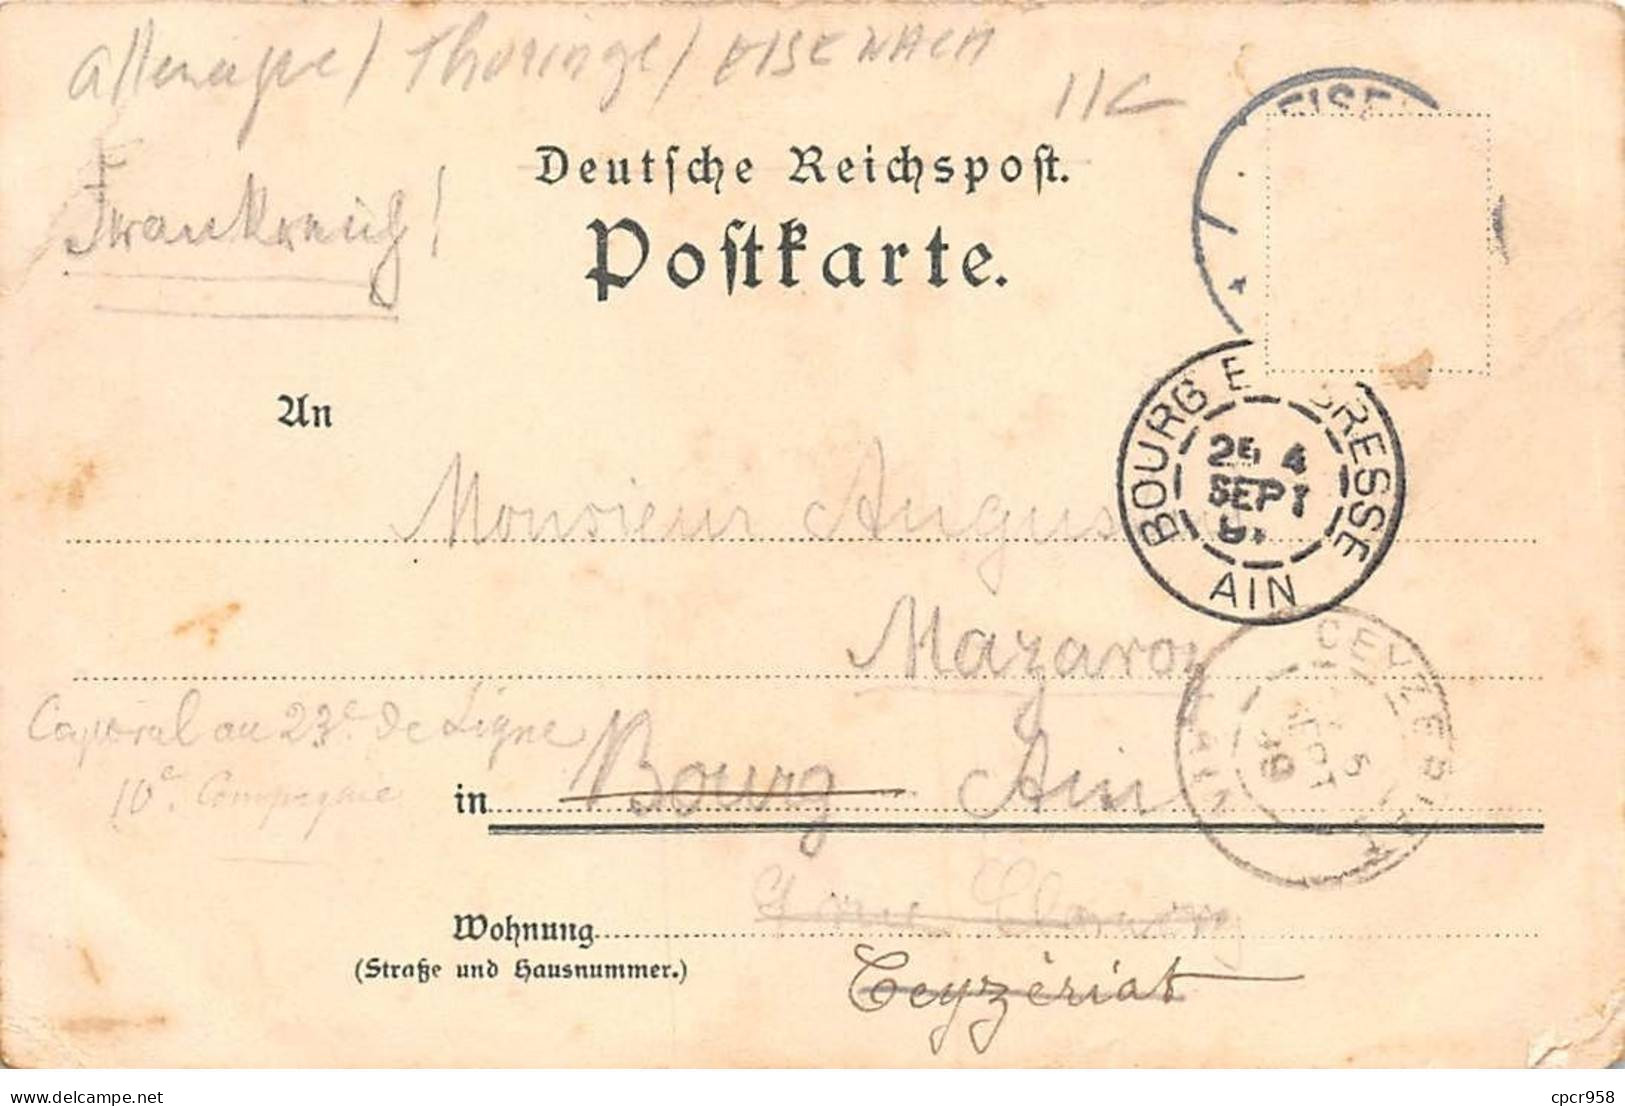 Allemagne / Thuringe / EISENACH
11€
Deutsche Reichspost.
Frankreich!
Postkarte.
EISE
An
BOURG E BRESSE
25 4
SEPT
AIN
Monsieur Augus
Mazaroz
CEYZERIAT
SEPT
AIN
Caporal au 23e de Ligne
10e Compagnie
in Bourg Ain
Wohnung
(Straße und Hausnummer.)
Ceyzériat
delcampe.net
cpcr958